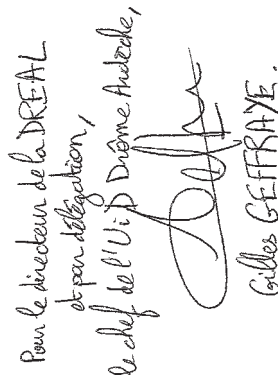 Pour le directeur de la DREAL
et par délégation,
le chef de l'UiD Drôme Ardèche,
Gilles GEFFRAYE.